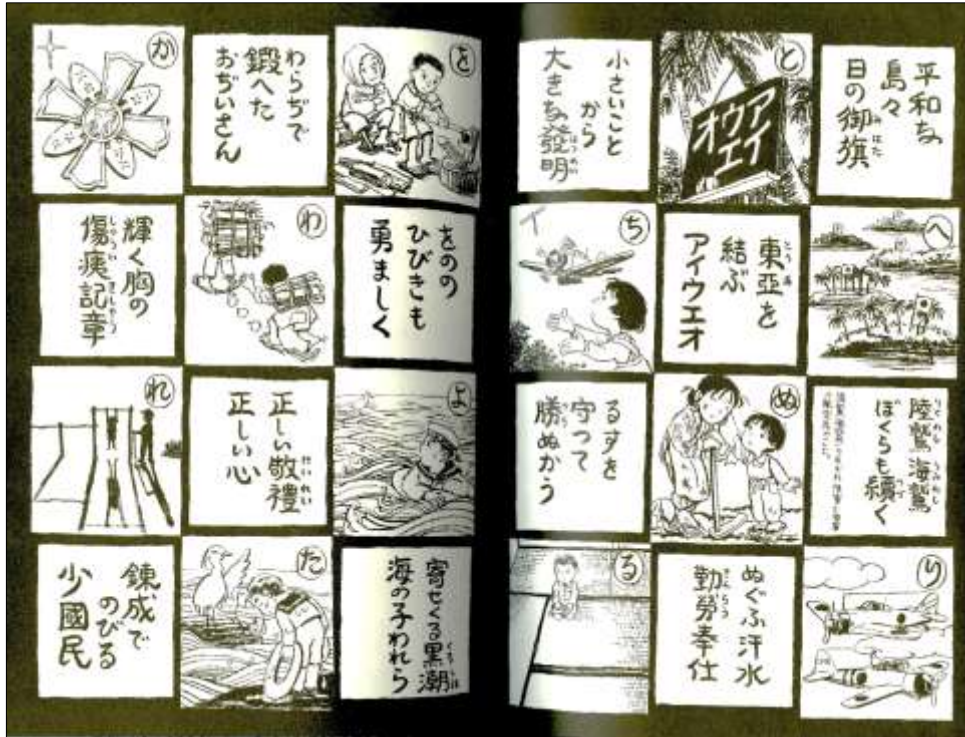 平和な
島々
日の御旗
と
アイ
ウエ
オ
小さいこと
から
大きな發明
へ
東亞を
結ぶ
アイウエオ
ち
陸鷲海鷲
ぼくらも續く
ぬ
るすを
守って
勝ぬかう
り
ぬぐふ汗水
勤勞奉仕
る
を
わらぢで
鍛へた
おぢいさん
か
をのの
ひびきも
勇ましく
わ
輝く胸の
傷痍記章
よ
正しい敬禮
正しい心
れ
寄せくる黒潮
海の子われら
た
錬成で
のびる
少國民